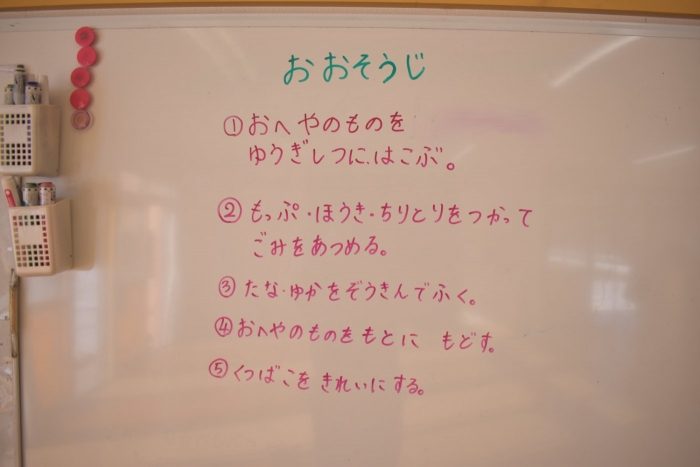 おおそうじ
①おへやのものを
ゆうぎしつに、はこぶ。
②もっぷ・ほうき・ちりとりをつかって
ごみをあつめる。
③たな・ゆかをぞうきんでふく。
④おへやのものをもとに もどす。
⑤くつばこを きれいにする。